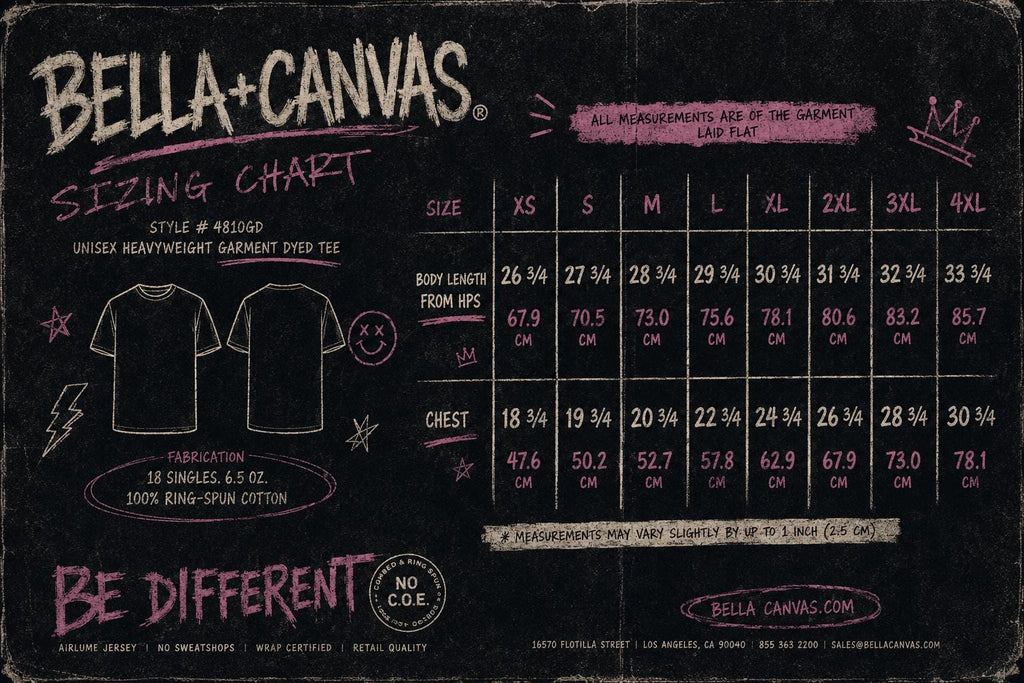 BELLA+CANVAS®
SIZING CHART
STYLE # 4810GD
UNISEX HEAVYWEIGHT GARMENT DYED TEE
FABRICATION
18 SINGLES. 6.5 OZ.
100% RING-SPUN COTTON
BE DIFFERENT
COMBED & RING SPUN
NO
C.O.E.
AIRLUME JERSEY | NO SWEATSHOPS | WRAP CERTIFIED | RETAIL QUALITY
ALL MEASUREMENTS ARE OF THE GARMENT
LAID FLAT
SIZE XS S M L XL 2XL 3XL 4XL
BODY LENGTH
FROM HPS
26 3/4 27 3/4 28 3/4 29 3/4 30 3/4 31 3/4 32 3/4 33 3/4
67.9 70.5 73.0 75.6 78.1 80.6 83.2 85.7
CM CM CM CM CM CM CM CM
CHEST 18 3/4 19 3/4 20 3/4 22 3/4 24 3/4 26 3/4 28 3/4 30 3/4
47.6 50.2 52.7 57.8 62.9 67.9 73.0 78.1
CM CM CM CM CM CM CM CM
* MEASUREMENTS MAY VARY SLIGHTLY BY UP TO 1 INCH (2.5 CM)
BELLA CANVAS.COM
16570 FLOTILLA STREET | LOS ANGELES, CA 90040 | 855 363 2200 | SALES@BELLACANVAS.COM